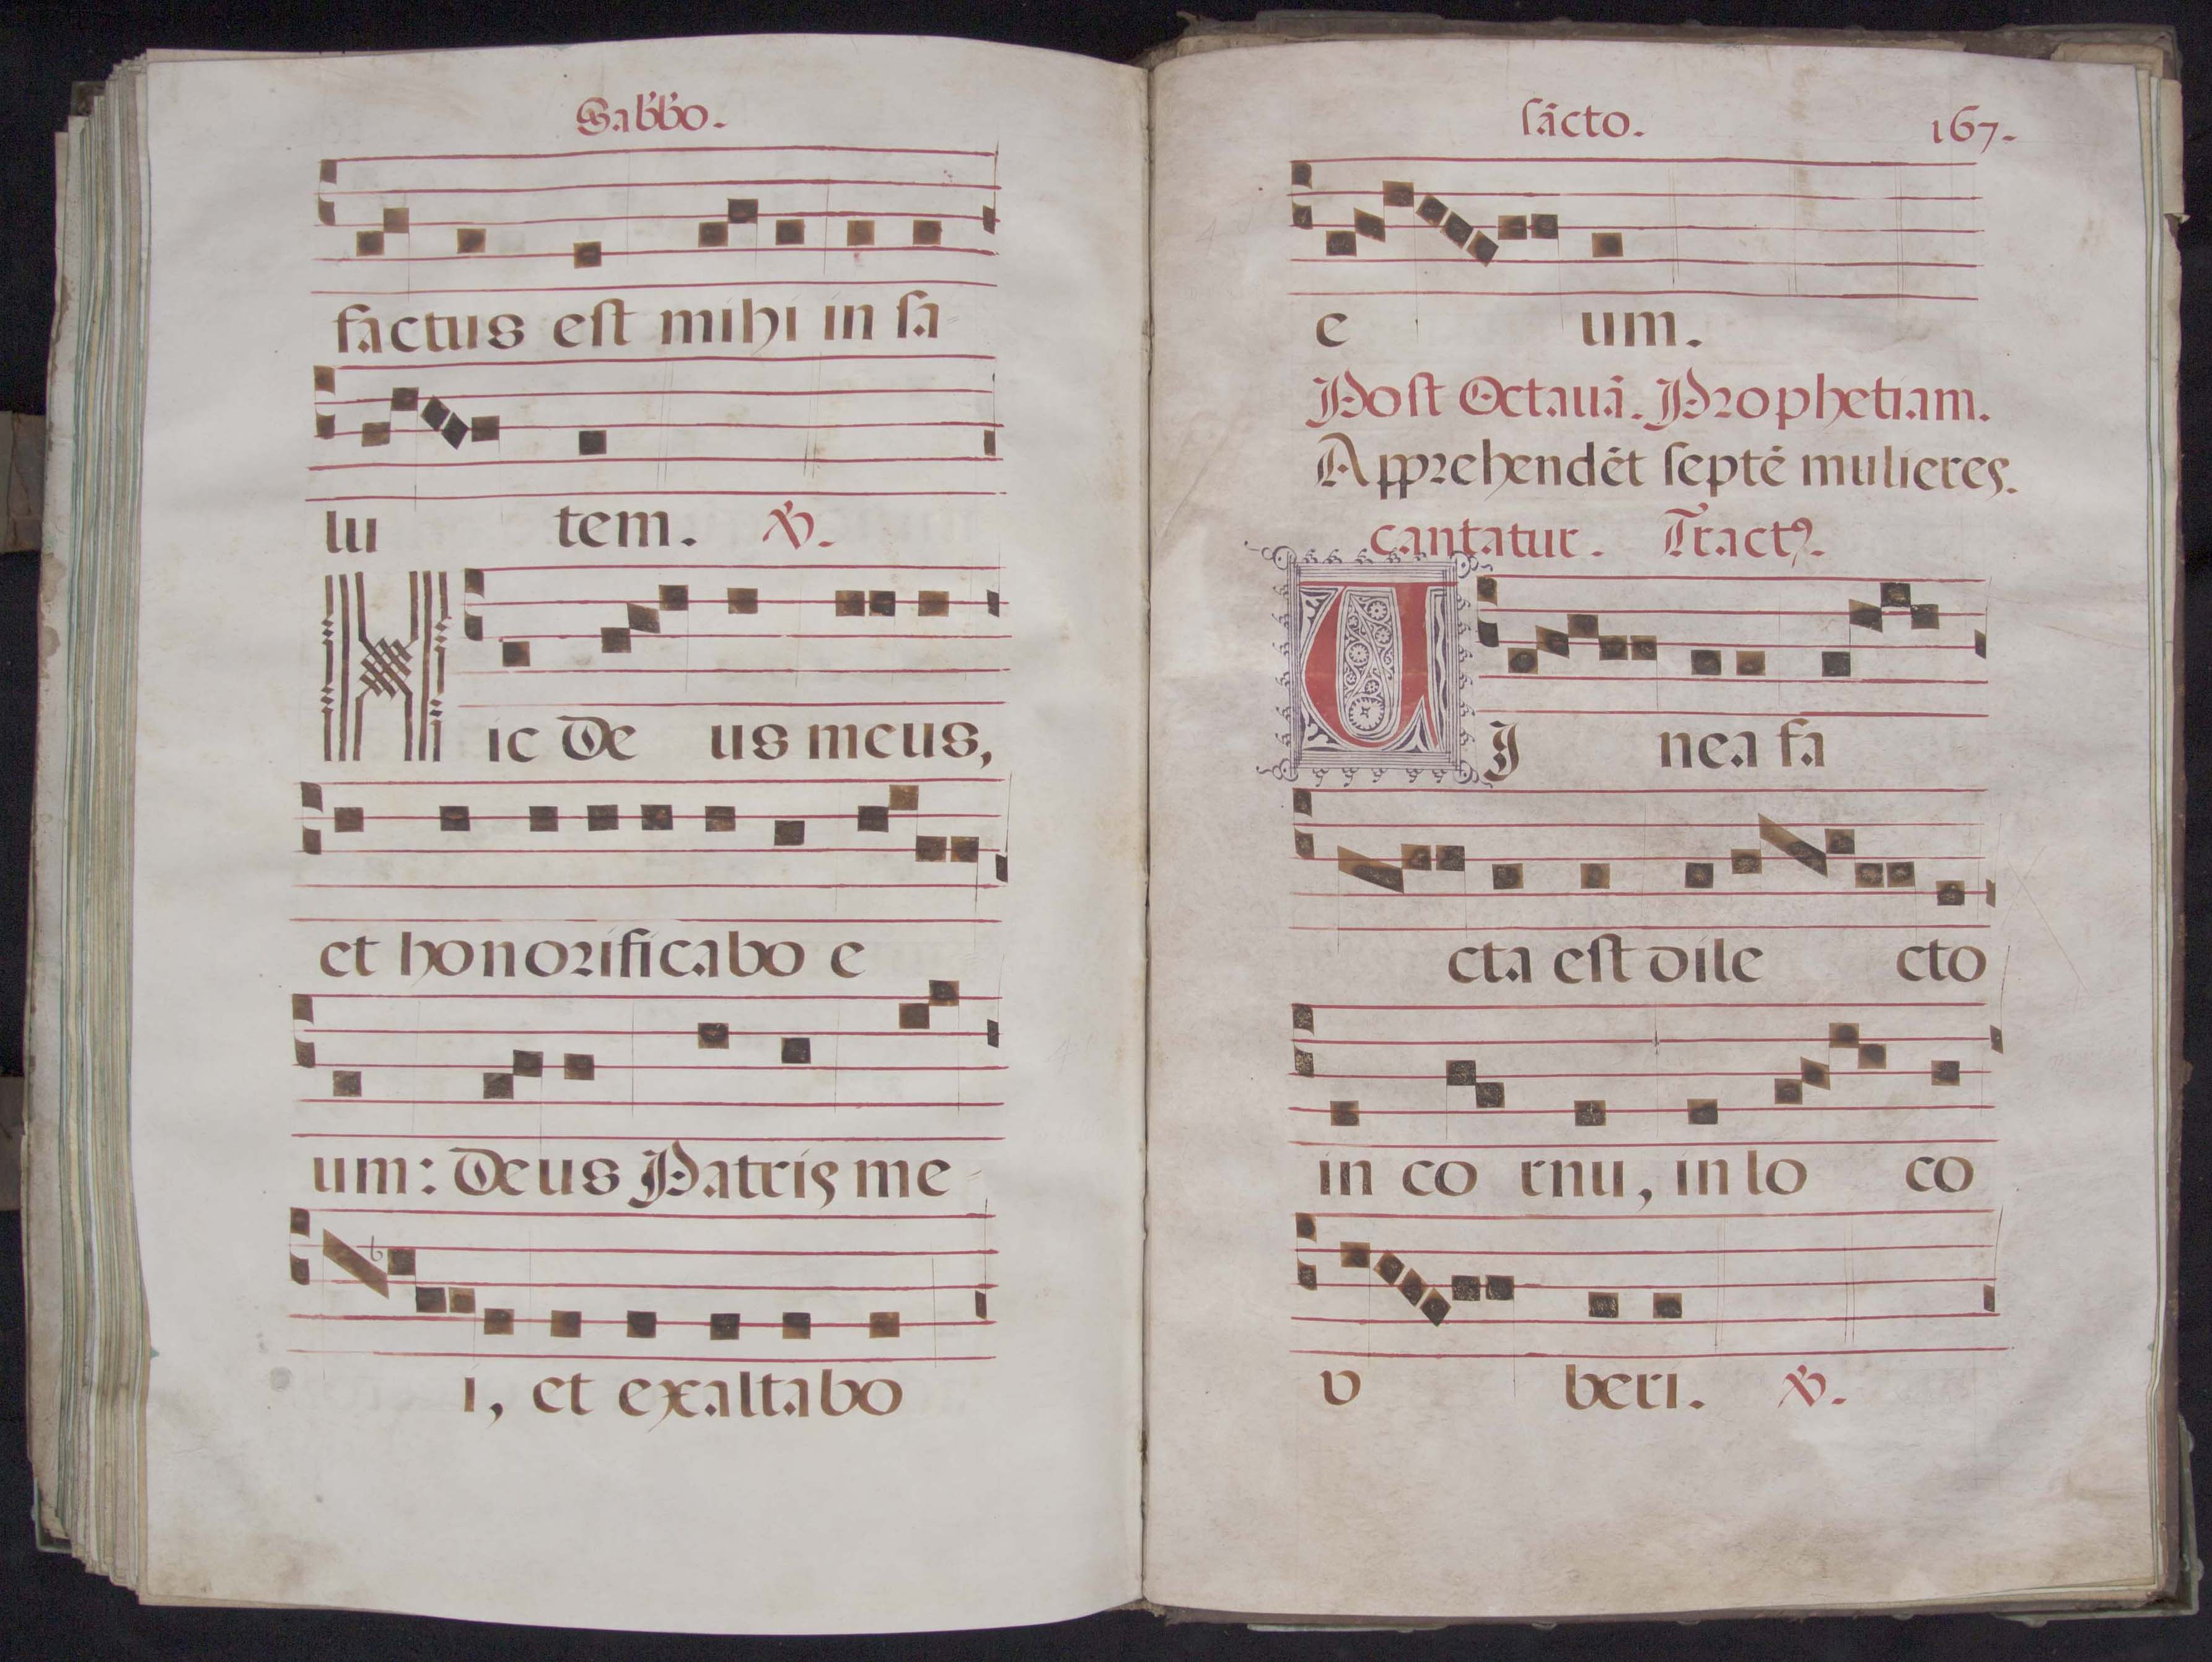 Sabb̃o.
factus est mihi in sa
lu tem. ℣.
Hic De us meus,
et honorificabo e
um: Deus Patris me
i, et exaltabo
sācto. 167.
e um.
Post Octauā. Prophetiam.
Apprehendēt septē mulieres.
cantatur. Tractꝰ.
UJ nea fa
cta est dile cto
in co rnu, in lo co
v beri. ℣.